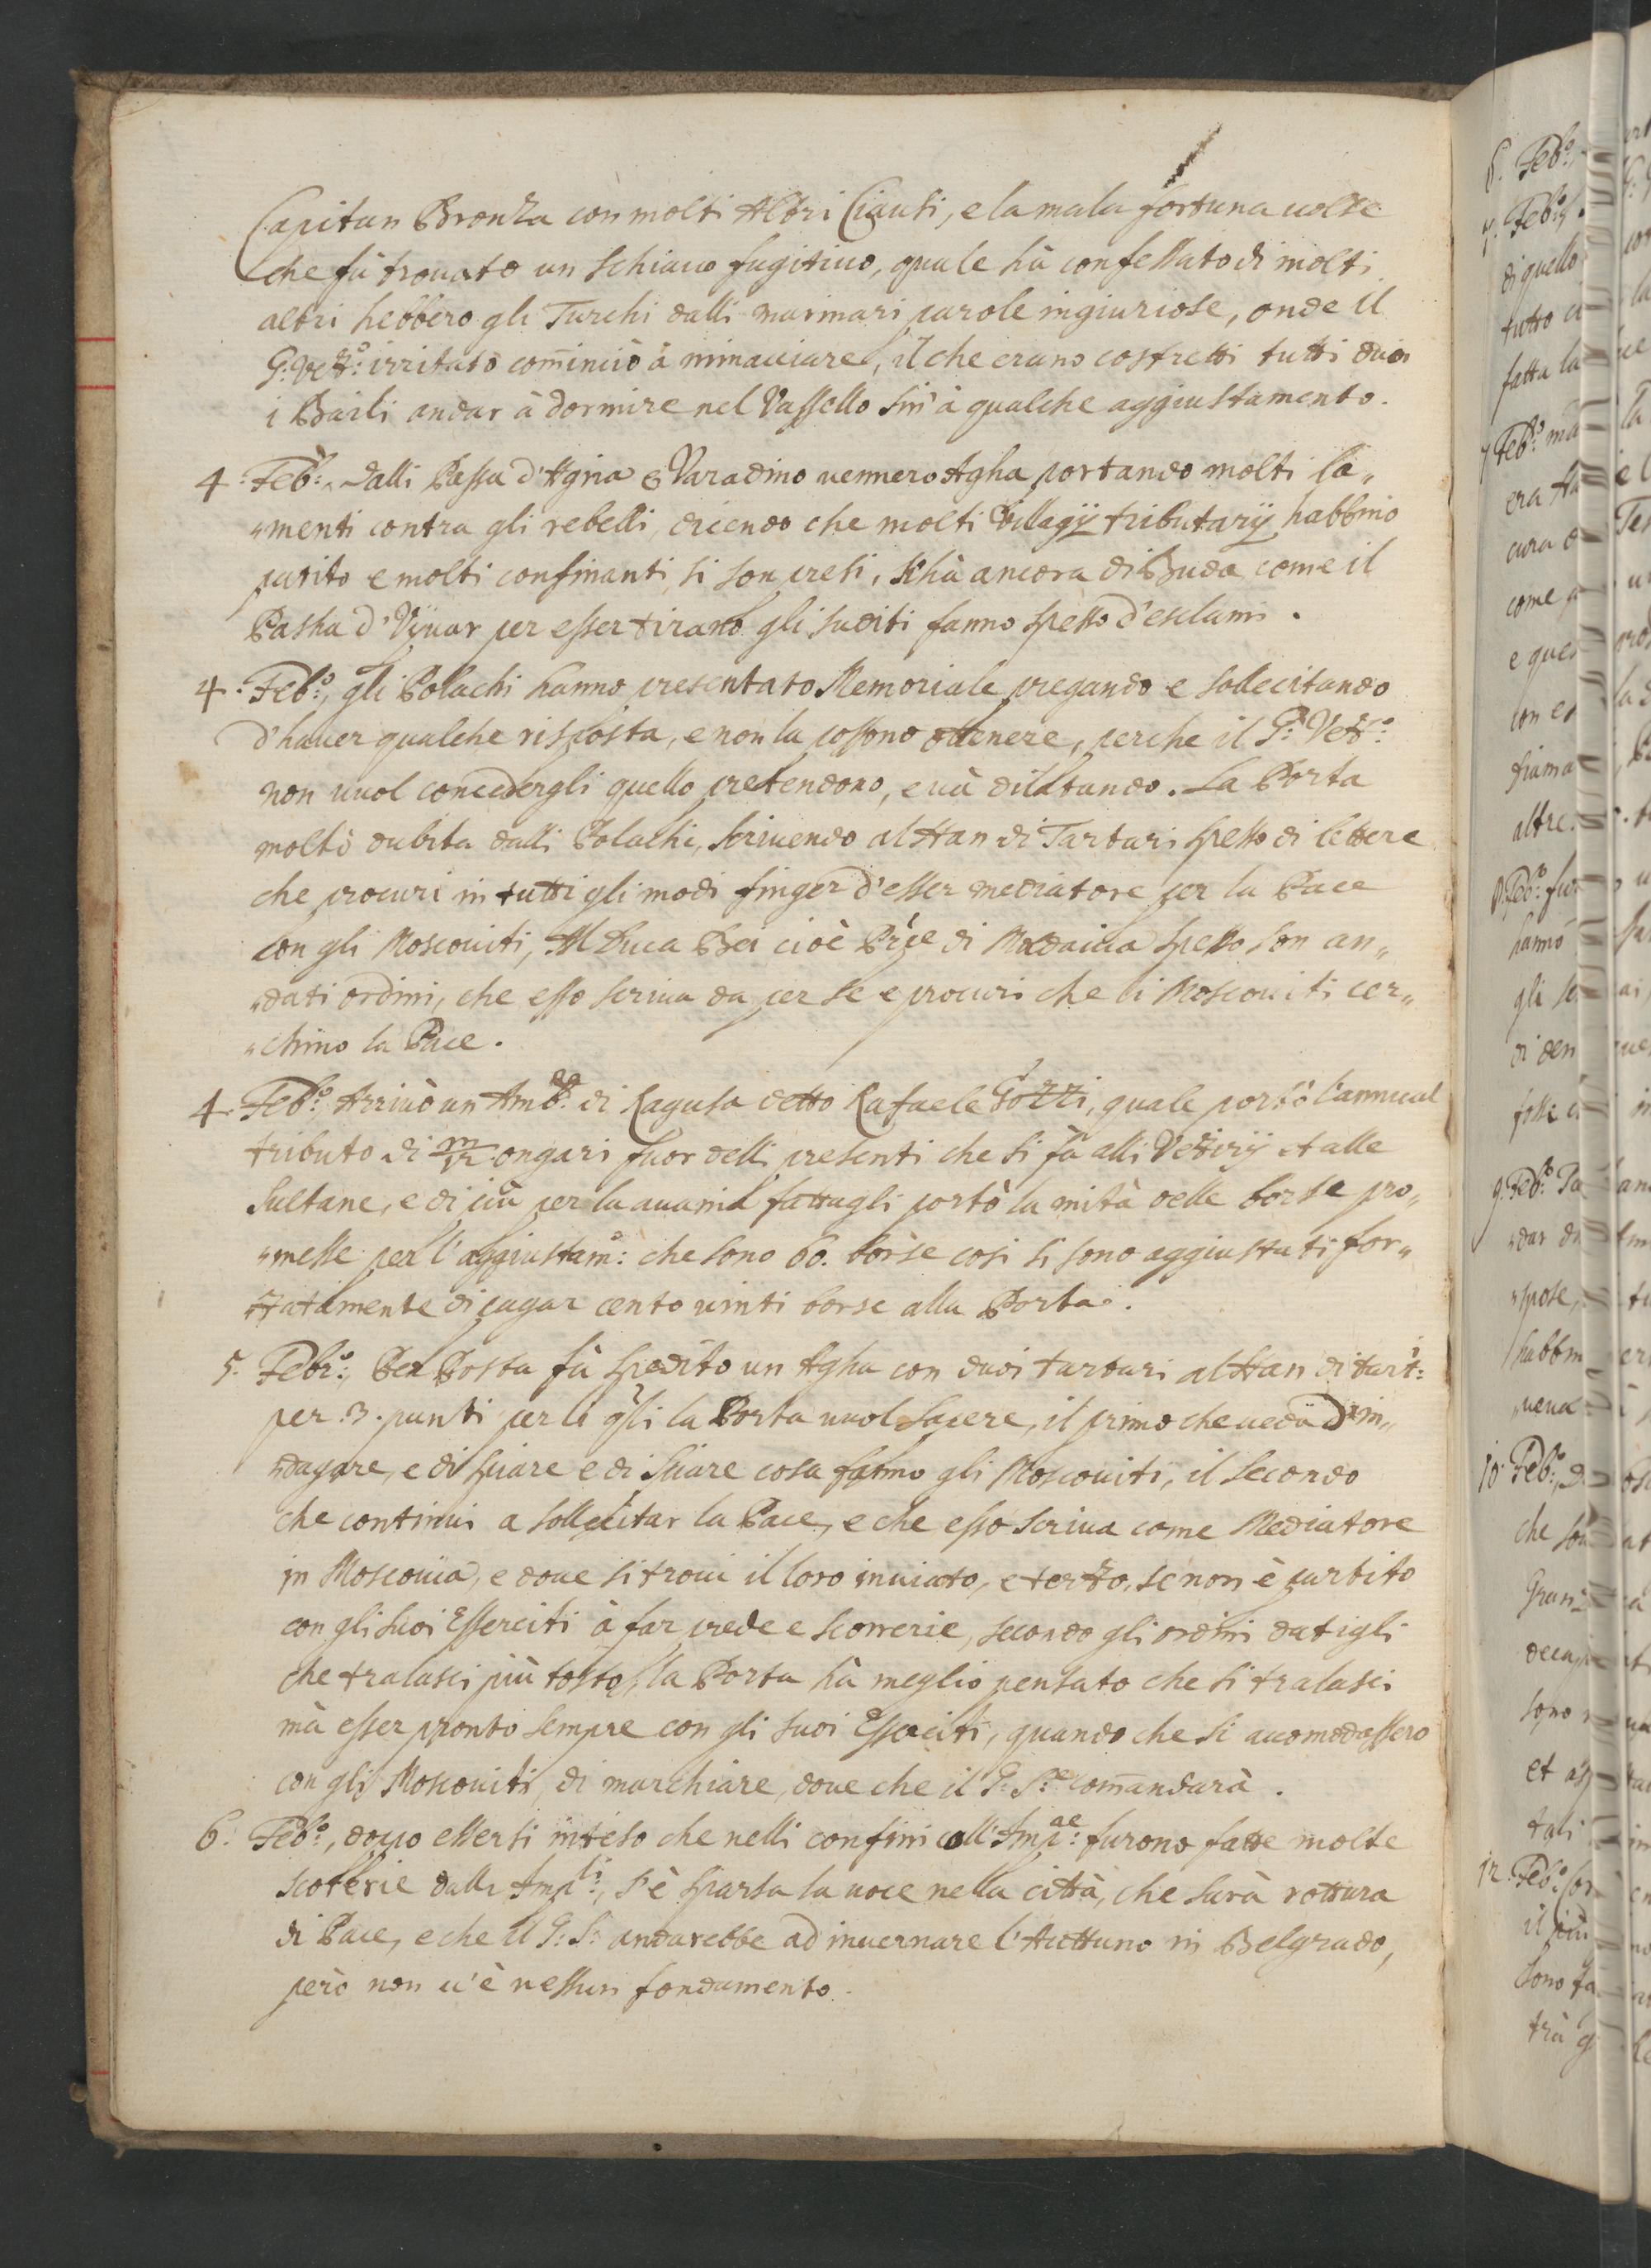 Capitan Bronza con molti Altri Ciausi, e la mala fortuna uolse
che fù trouato un schiauo fugitiuo, quale hà confessato di molti
altri hebbero gli Turchi dalli marinari parole ingiuriose, onde il
G: Vett:º irritato com̄inciò à minacciare, il che erano costretti tutti duoi
i Baili andar à dormire nel Vassello sin' à qualche aggiustamento.
4. Feb:º, dalli Bassa d'Agria e Varadino uennero Agha portando molti la„
„menti contra gli rebelli, dicendo che molti Villagÿ tributarÿ habbino
patito e molti confinanti si son presi, s'hà ancora di Buda come il
Basha d'Vÿuar per esser tirano gli suditi fanno spesso d'esclami.
4. Feb:º, gli Polachi hanno presentato Memoriale pregando e sollecitando
d'hauer qualche risposta, e non la possono ottenere, perche il G: Vett:º
non uuol concedergli quello pretendono, e uà dilatando. La Porta
moltò dubita dalli Polachi, scriuendo al Han di Tartari spesso di lettere
che procuri in tutti gli modi finger d'esser mediatore per la Pace
con gli Moscouiti, Al Duca Bei cioè Pr̄pe di spesso son an„
„dati ordini, che esso scriua da per se e procuri che li Moscouiti cer„
„chino la Pace.
4. Feb:º, Arriuò un Amb:re di Ragusa detto Rafaele Gozzi, quale portò l'annual
tributo di ongari fuor delli presenti che si fà alli Vezirÿ et alle
Sultane, e di più per la auania fattagli portò la mità delle borse pro„
„messe per l'aggiustam:º che sono 60. borse cosi si sono aggiustati for„
„zatamente di pagar cento uinti borse alla Porta.
5. Febr:º, Per Posta fù spedito un Agha con duoi tartari al Han di tart:i
per .3. punti per li q̄li la Porta uuol sapere, il primo che ueda d'in„
„dagare, e di spiare e di spiare cosa fanno gli Moscouiti, il secondo
che continui a sollecitar la Pace, e che esso scriua come Mediatore
in Moscouia, e doue si troui il loro inuiato, e terzo, se non è partito
con gli suoi Esserciti à far prede e scorrerie, secondo gli ordini datigli
che tralasci più tosto, la Porta hà meglio pensato che si tralasci
mà esser pronto sempre con gli suoi Esserciti, quando che si accomodassero
con gli Moscouiti, di marchiare, doue che il G: S:re com̄andarà.
6. Feb:º, dopo essersi inteso che nelli confini coll' Imp:ae furono fatte molte
scorerie dalli Imp:li, s'è sparsa la uoce nella città, che sarà rottura
di Pace, e che il G: S: andarebbe ad inuernare l'Auttuno in Belgrado,
però non u'è nessun fondamento.